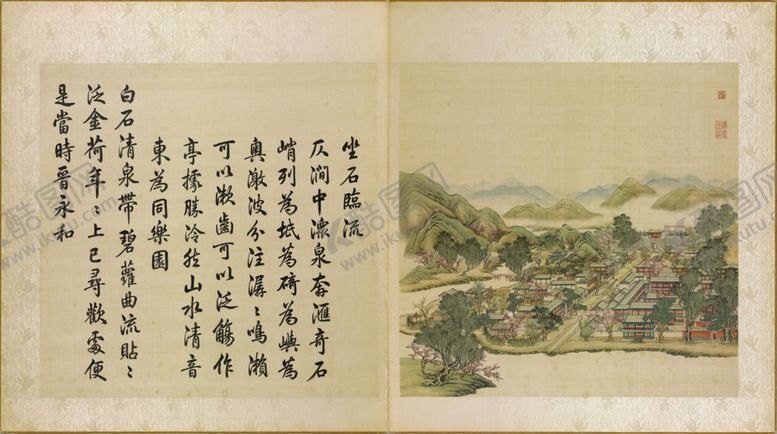 坐石臨流
仄澗中潀泉奔滙奇石
峭列為坻為碕為嶼為
奥激波分注潺〻鳴瀨
可以漱齒可以泛觴作
亭據勝泠然山水清音
東為同樂園
白石清泉帶碧蘿曲流貼〻
泛金荷年〻上巳尋歡處便
是當時晉永和
酷图网